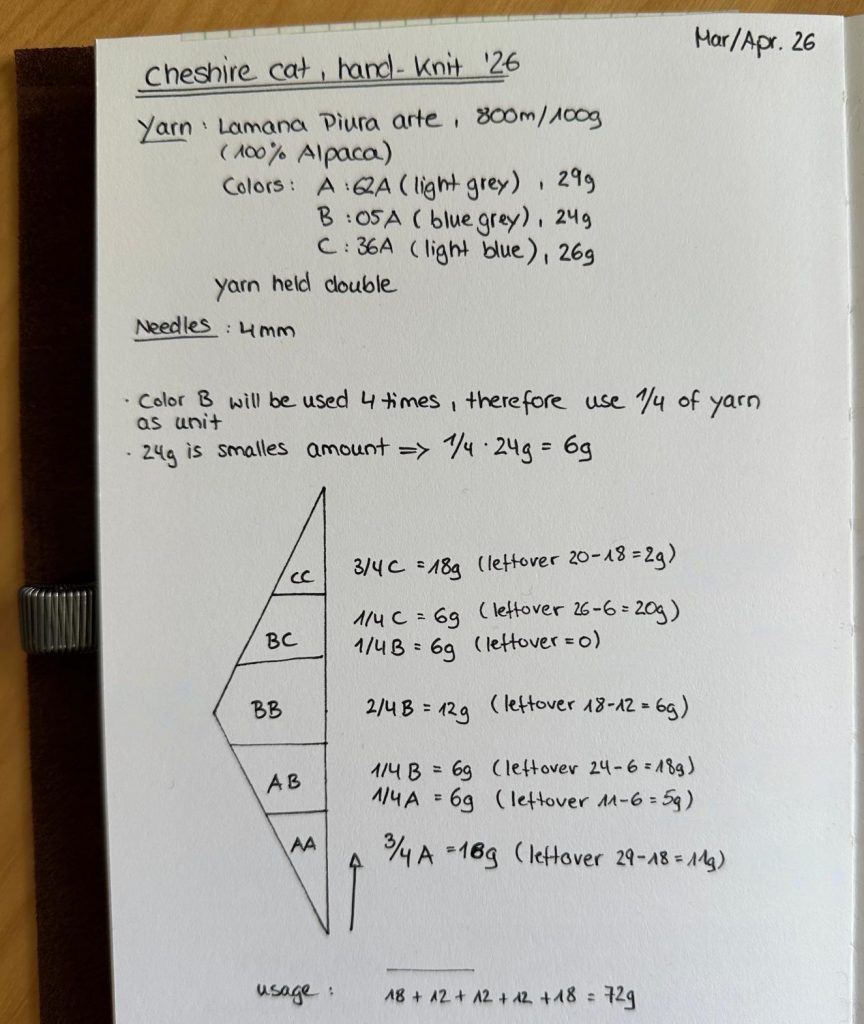 Mar/Apr. 26
Cheshire cat, hand-knit '26
Yarn: Lamana Piura arte, 800m/100g
(100% Alpaca)
Colors: A: 62A (light grey), 29g
B: 05A (blue grey), 24g
C: 36A (light blue), 26g
yarn held double
Needles: 4mm
· Color B will be used 4 times, therefore use 1/4 of yarn
as unit
· 24g is smalles amount => 1/4 · 24g = 6g
CC 3/4 C = 18g (leftover 20-18=2g)
1/4 C = 6g (leftover 26-6=20g)
BC 1/4 B = 6g (leftover=0)
BB 2/4 B = 12g (leftover 18-12=6g)
1/4 B = 6g (leftover 24-6=18g)
AB 1/4 A = 6g (leftover 11-6=5g)
AA 3/4 A = 18g (leftover 29-18=11g)
usage: 18 + 12 + 12 + 12 + 18 = 72g